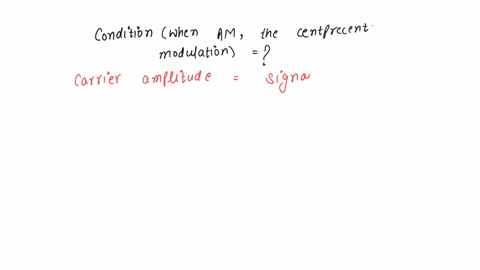 Condition (when AM, the centprecent
modulation) = ?
Carrier amplitude = signa